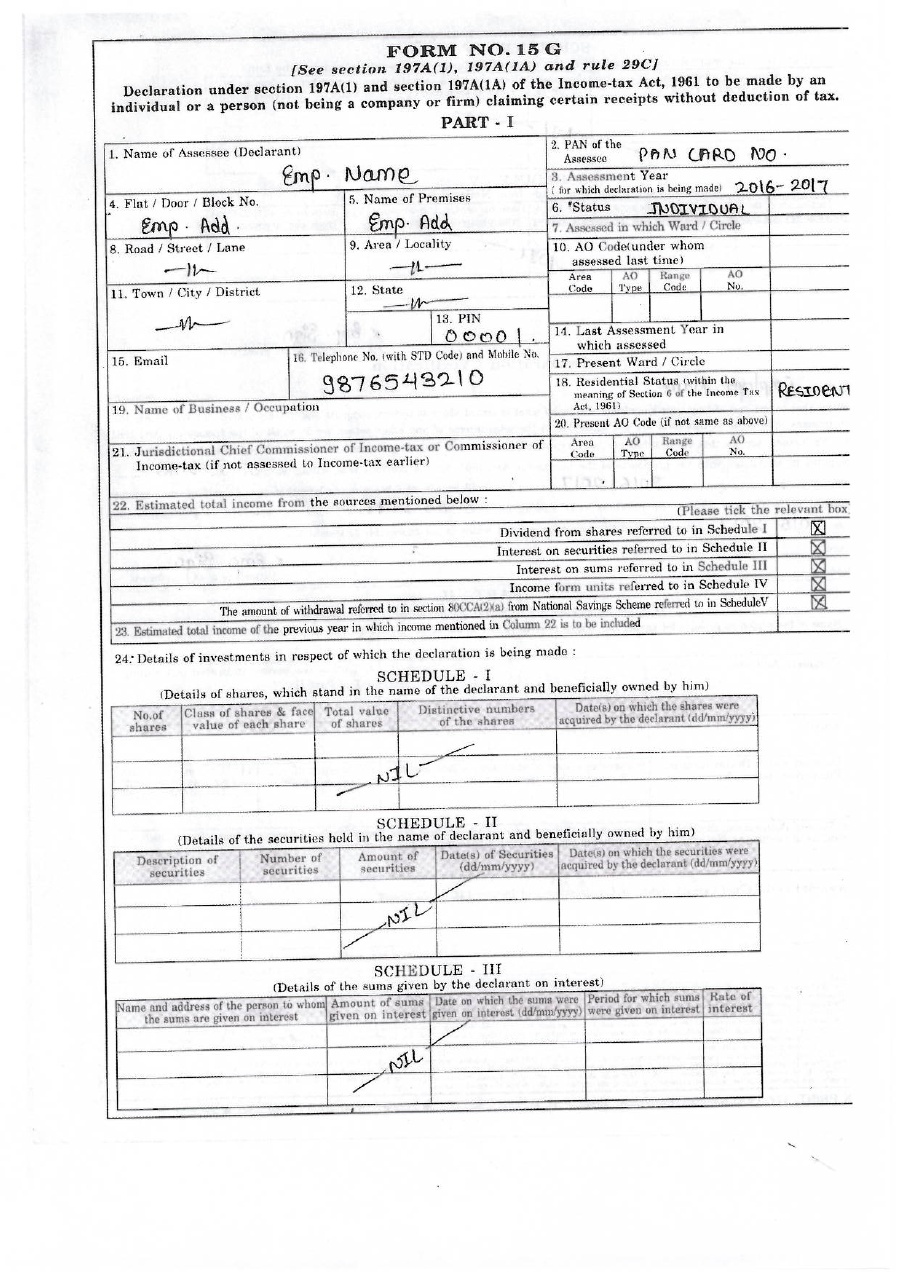 FORM NO. 15 G
[See section 197A(1), 197A(1A) and rule 29C]
Declaration under section 197A(1) and section 197A(1A) of the Income-tax Act, 1961 to be made by an
individual or a person (not being a company or firm) claiming certain receipts without deduction of tax.
PART - I
1. Name of Assessee (Declarant)
Emp. Name
2. PAN of the
Assessee
PAN CARD NO.
3. Assessment Year
( for which declaration is being made) 2016-2017
4. Flat / Door / Block No.
Emp. Add.
5. Name of Premises
Emp. Add
6. *Status INDIVIDUAL
7. Assessed in which Ward / Circle
8. Road / Street / Lane
—11—
9. Area / Locality
—11—
10. AO Code(under whom
assessed last time)
Area
Code
AO
Type
Range
Code
AO
No.
11. Town / City / District
—11—
12. State
—11—
13. PIN
00001.
14. Last Assessment Year in
which assessed
15. Email
16. Telephone No. (with STD Code) and Mobile No.
9876543210
17. Present Ward / Circle
18. Residential Status (within the
meaning of Section 6 of the Income Tax
Act, 1961)
RESIDENT
19. Name of Business / Occupation
20. Present AO Code (if not same as above)
21. Jurisdictional Chief Commissioner of Income-tax or Commissioner of
Income-tax (if not assessed to Income-tax earlier)
Area
Code
AO
Type
Range
Code
AO
No.
22. Estimated total income from the sources mentioned below :
(Please tick the relevant box
Dividend from shares referred to in Schedule I
Interest on securities referred to in Schedule II
Interest on sums referred to in Schedule III
Income form units referred to in Schedule IV
The amount of withdrawal referred to in section 80CCA(2)(a) from National Savings Scheme referred to in ScheduleV
23. Estimated total income of the previous year in which income mentioned in Column 22 is to be included
24. Details of investments in respect of which the declaration is being made :
SCHEDULE - I
(Details of shares, which stand in the name of the declarant and beneficially owned by him)
No.of
shares
Class of shares & face
value of each share
Total value
of shares
Distinctive numbers
of the shares
Date(s) on which the shares were
acquired by the declarant (dd/mm/yyyy)
NIL
SCHEDULE - II
(Details of the securities held in the name of declarant and beneficially owned by him)
Description of
securities
Number of
securities
Amount of
securities
Date(s) of Securities
(dd/mm/yyyy)
Date(s) on which the securities were
acquired by the declarant (dd/mm/yyyy)
NIL
SCHEDULE - III
(Details of the sums given by the declarant on interest)
Name and address of the person to whom
the sums are given on interest
Amount of sums
given on interest
Date on which the sums were
given on interest (dd/mm/yyyy)
Period for which sums
were given on interest
Rate of
interest
NIL